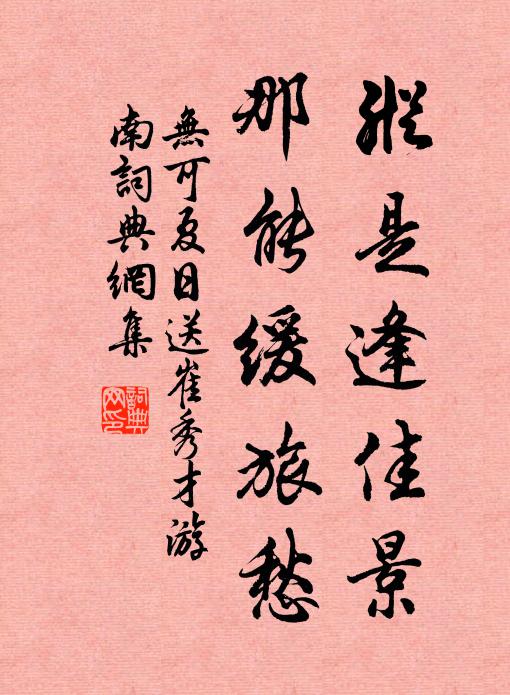 縱是逢佳景
那能緩旅愁
無可夏日送崔秀才游
南詞典網集
詞典
网印